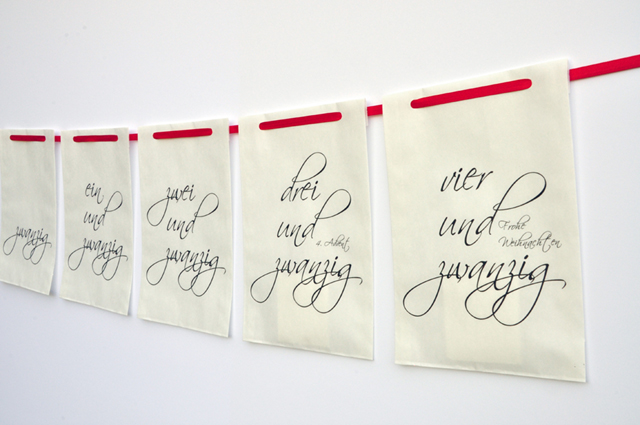 zwanzig
ein
und
zwanzig
zwei
und
zwanzig
drei
und
4. Advent
zwanzig
vier
und
Frohe
Weihnachten
zwanzig